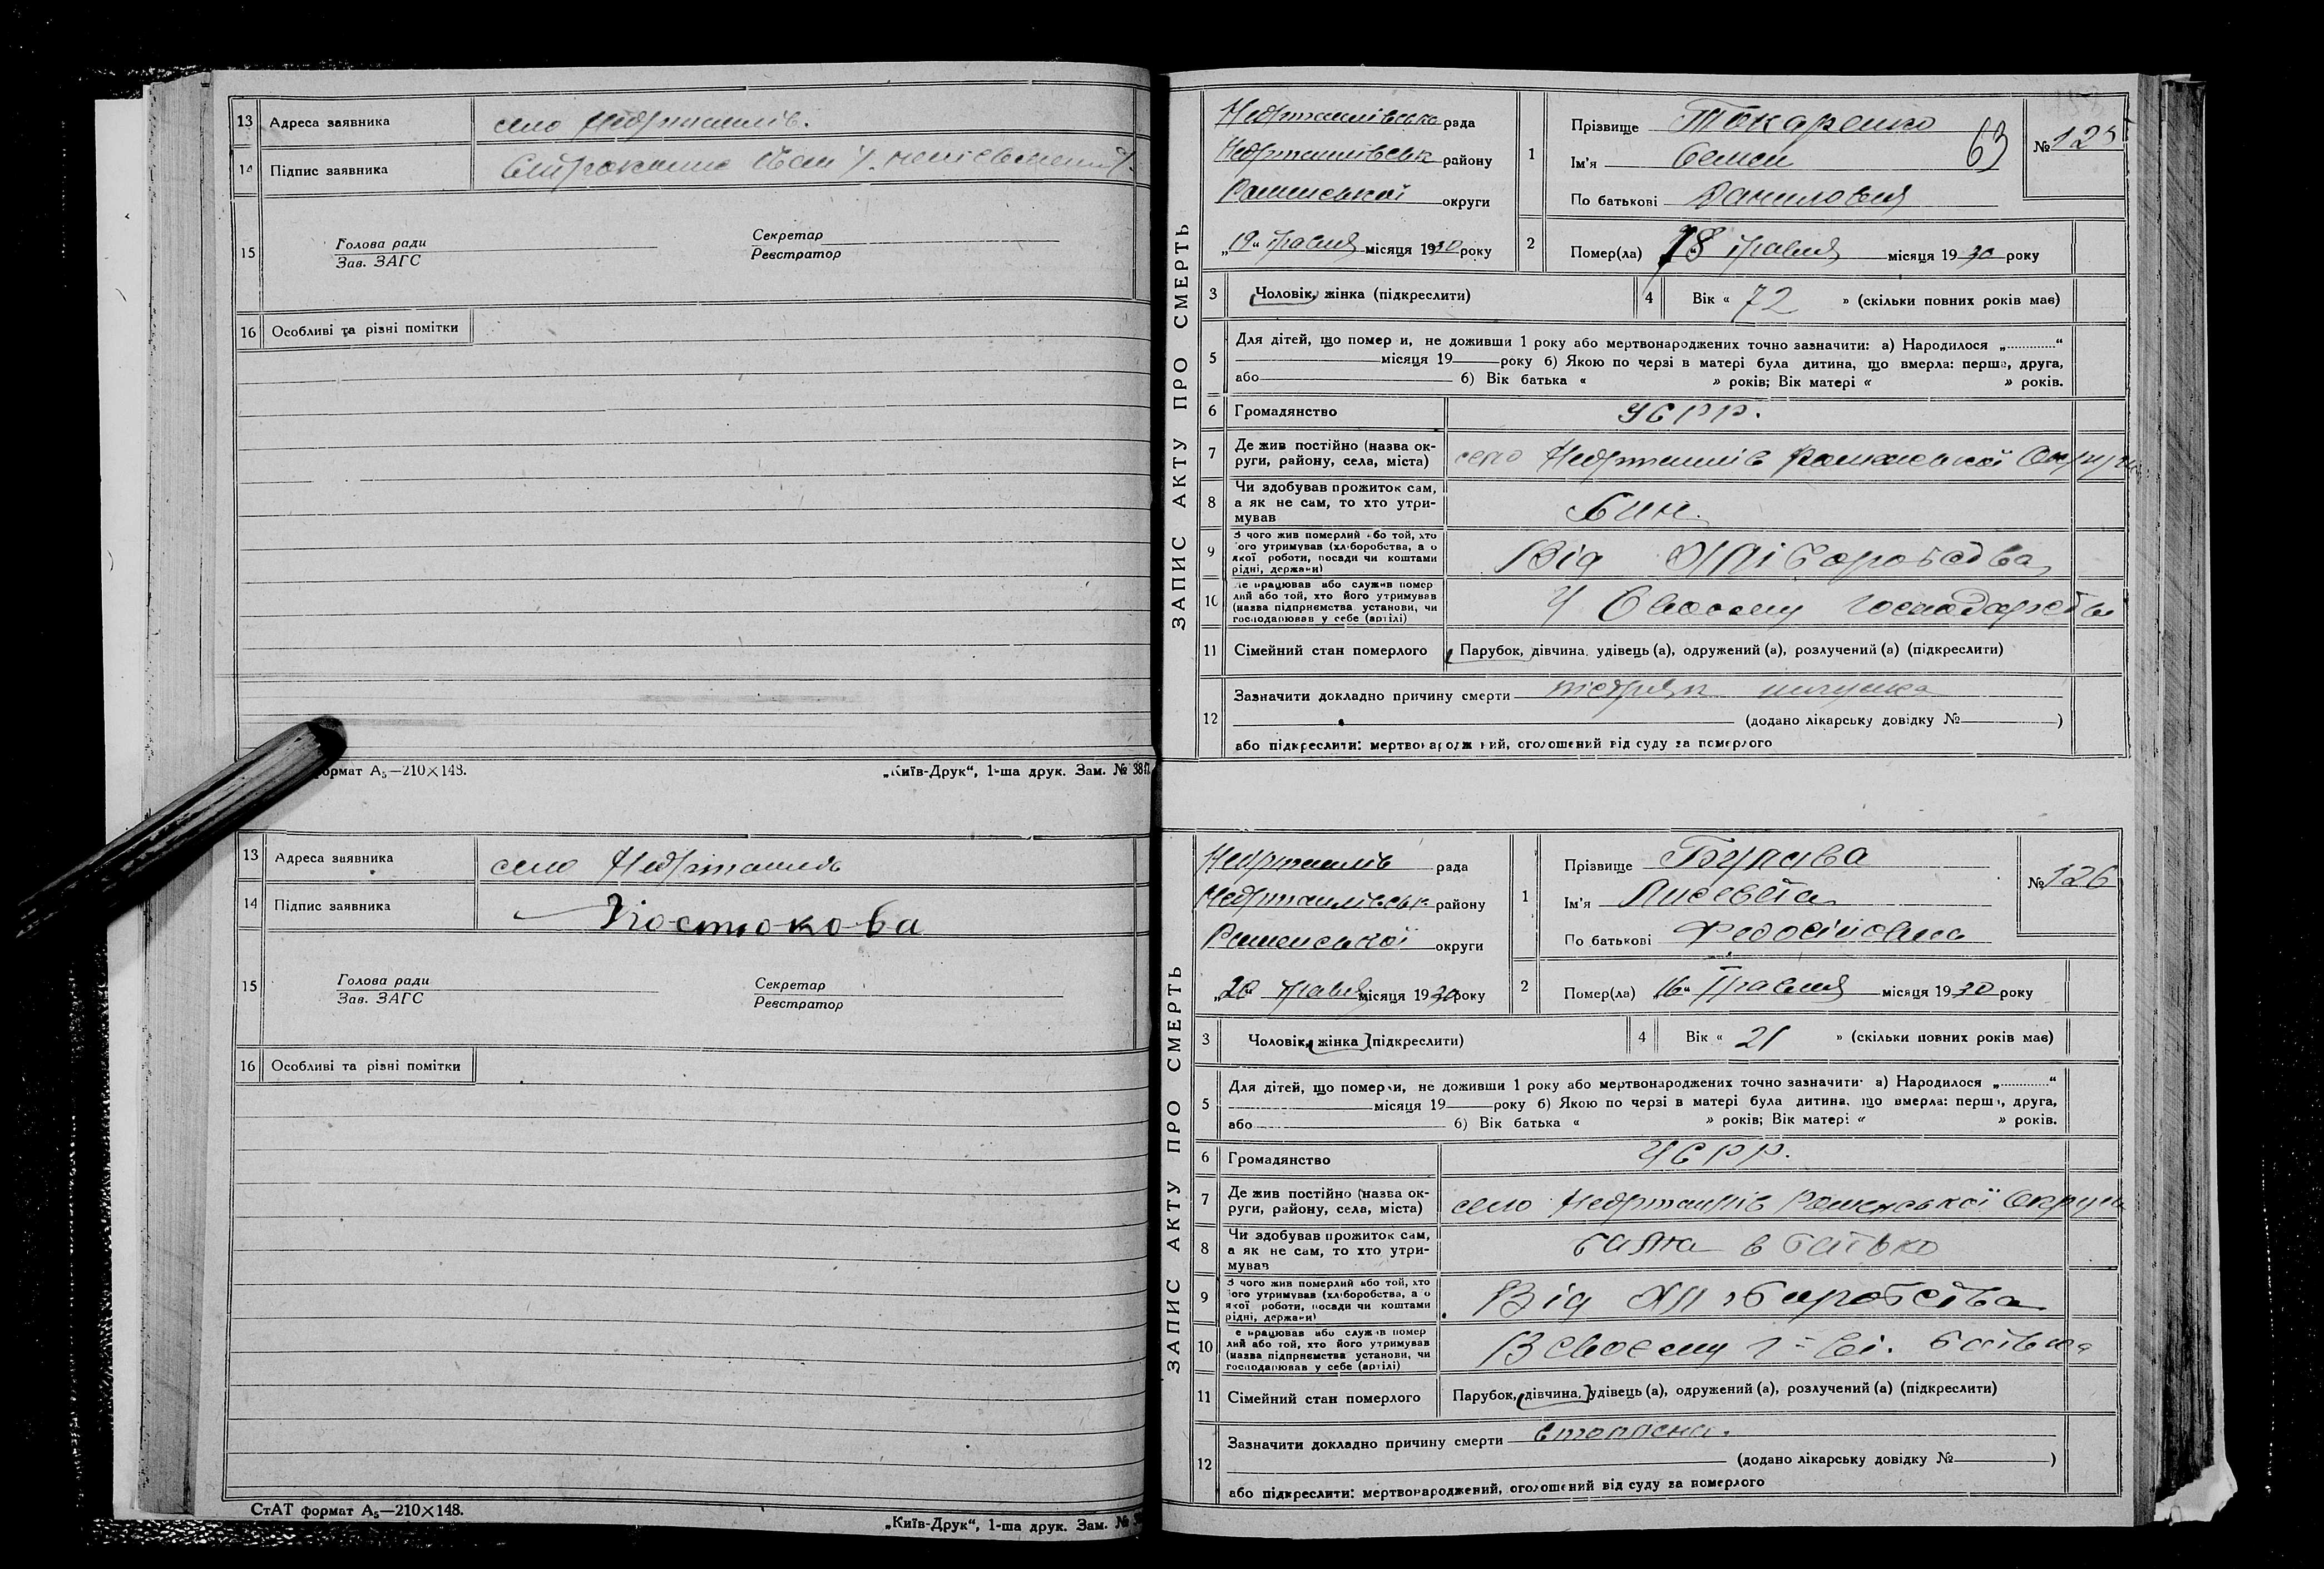 13 Адреса заявника село Недригайлів.
14 Підпис заявника
15 Голова ради Секретар
Зав. ЗАГС Реєстратор
16 Особливі та різні помітки
формат А5—210×148. „Київ-Друк“, 1-ша друк. Зам. №
13 Адреса заявника село Недригайлів
14 Підпис заявника Костюкова
15 Голова ради Секретар
Зав. ЗАГС Реєстратор
16 Особливі та різні помітки
СтАТ формат А5—210×148.
„Київ-Друк“, 1-ша друк. Зам. №
ЗАПИС АКТУ ПРО СМЕРТЬ
Недригайлівська рада
Недригайлівськ району
Роменської округи
„19“ травня місяця 1930 року
1 Прізвище Токаренко
Ім'я Семен 63
По батькові Данилович
№ 125
2 Помер(ла) 18 травня місяця 1930 року
3 Чоловік, жінка (підкреслити) 4 Вік « 72 » (скільки повних років має)
5 Для дітей, що померли, не доживши 1 року або мертвонароджених точно зазначити: а) Народилося „............“
місяця 19 року б) Якою по черзі в матері була дитина, що вмерла: перша, друга,
або б) Вік батька « » років; Вік матері « » років.
6 Громадянство УСРР.
7 Де жив постійно (назва ок-
руги, району, села, міста) село Недригайлів Роменської Округи
8 Чи здобував прожиток сам,
а як не сам, то хто утри-
мував
9 З чого жив померлий або той, хто
його утримував (хліборобства, а о
якої роботи, посади чи коштами
рідні, держави) Від Хліборобства
10 Де працював або служив помер
лий або той, хто його утримував
(назва підприємства установи, чи
господарював у себе (артілі) У Своєму господарстві
11 Сімейний стан померлого Парубок, дівчина, удівець (а), одружений (а), розлучений (а) (підкреслити)
12 Зазначити докладно причину смерти
(додано лікарську довідку № )
або підкреслити: мертвонароджений, оголошений від суду за померлого
ЗАПИС АКТУ ПРО СМЕРТЬ
Недригайлів рада
Недригайлівськ району
Роменської округи
„20“ травня місяця 1930 року
1 Прізвище
Ім'я Лисевета
По батькові Федосіївна
№ 126
2 Помер(ла) „16“ Травня місяця 1930 року
3 Чоловік, жінка (підкреслити) 4 Вік « 21 » (скільки повних років має)
5 Для дітей, що померли, не доживши 1 року або мертвонароджених точно зазначити: а) Народилося „............“
місяця 19 року б) Якою по черзі в матері була дитина, що вмерла: перша, друга,
або б) Вік батька « » років; Вік матері « » років.
6 Громадянство УСРР.
7 Де жив постійно (назва ок-
руги, району, села, міста) село Недригайлів Роменської Округи
8 Чи здобував прожиток сам,
а як не сам, то хто утри-
мував
9 З чого жив померлий або той, хто
його утримував (хліборобства, а о
якої роботи, посади чи коштами
рідні, держави) Від Хліборобства
10 Де працював або служив помер
лий або той, хто його утримував
(назва підприємства установи, чи
господарював у себе (артілі) В своєму г-ві. батька
11 Сімейний стан померлого Парубок, дівчина, удівець (а), одружений (а), розлучений (а) (підкреслити)
12 Зазначити докладно причину смерти
(додано лікарську довідку № )
або підкреслити: мертвонароджений, оголошений від суду за померлого